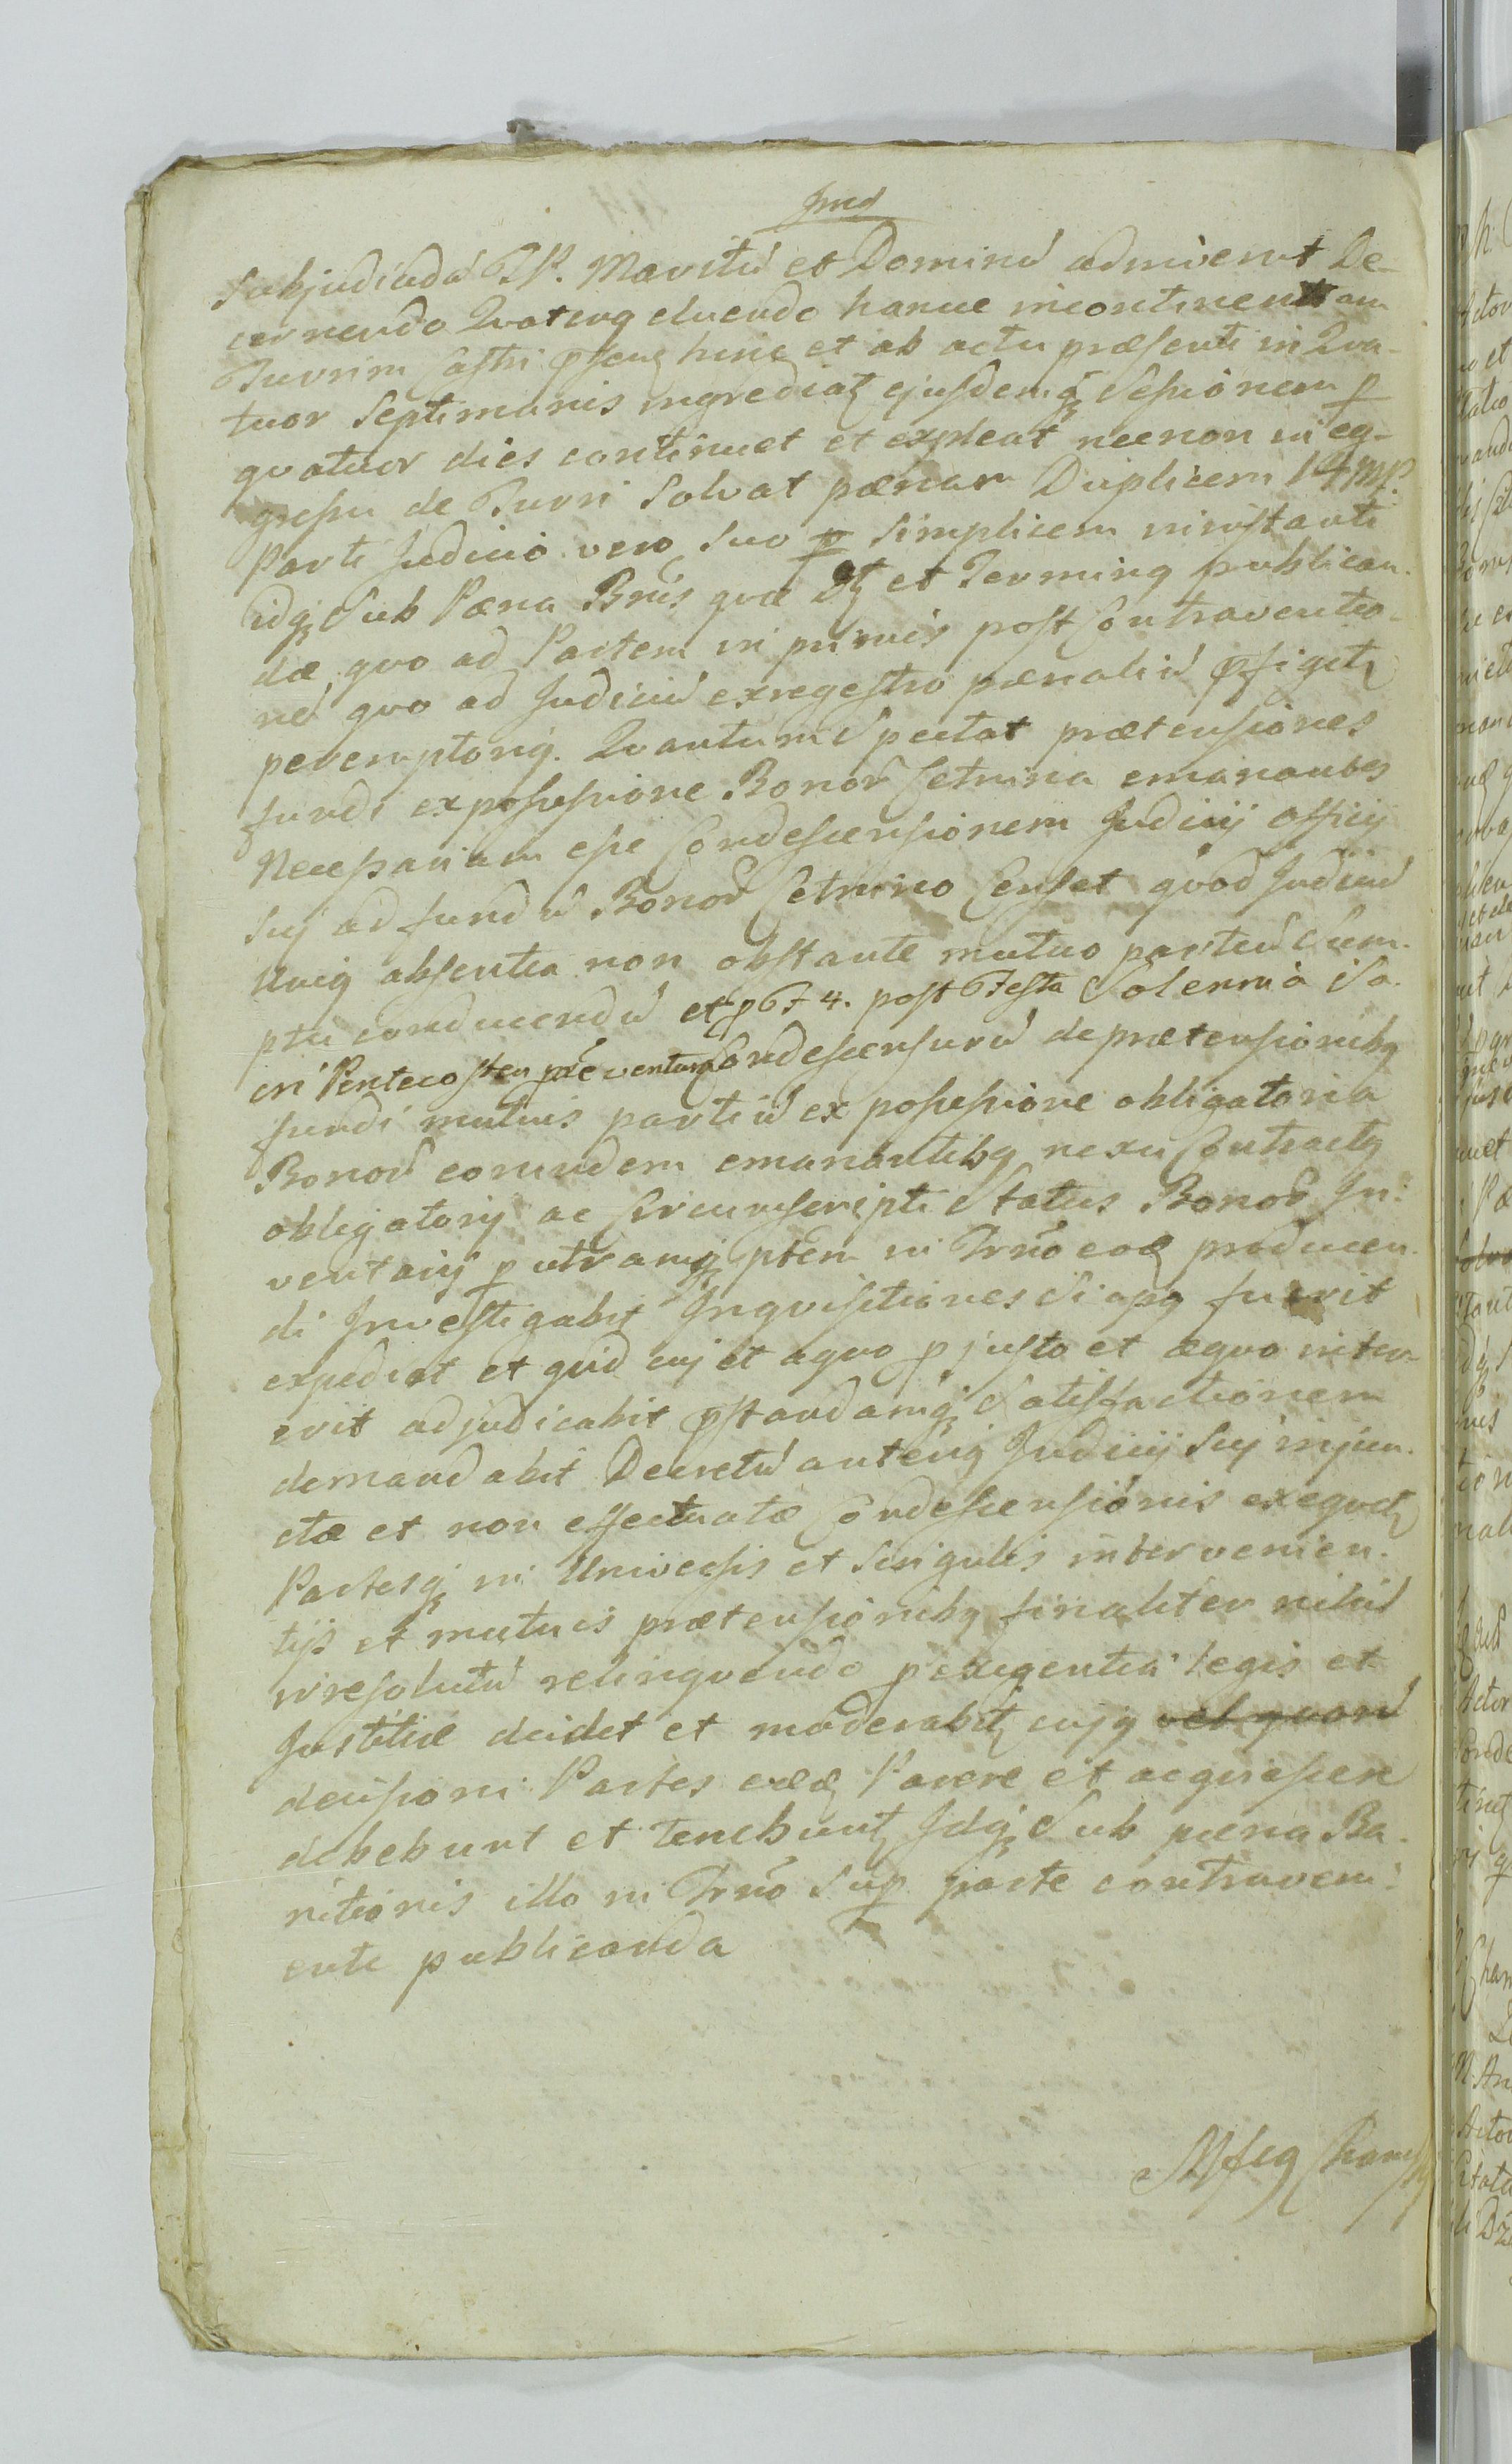 subjudicadā TP. Maritū et Dominū adinvenit De-
cernendo Qvatenq eluendo hancce incontinentiam
Turrim Castri psenz hinc et ab actu præsenti in Qva-
tuor Septimanis ingrediatz ejusdemqz Sessionem p
qvatuor dies continuet et expleat necnon in eg-
gressu de Turri Solvat pænam Duplicem 14 mp.
Parti Judicio vero suo simplicem in instanti
idqz Sub Pæna Bnis qvæ et Terminq publican-
dæ qvo ad Partem in primis post Contraventio-
né qvo ad Judiciū ex regestro pænaliū pfigetz
peremptoriq. Qvantum Spectat prætensiones
fundi ex possessione Bonor Cetnina emanantes
Necessariam esse Condescensionem Judicij Officij
sui ad fundū Bonor Cetnino Censet qvod Judiciū
Uniq absentia non obstante mutuo partiū Sum-
ptu conducendū et p F 4. post Festa Solennia Sa-
cri Pentecosten Condescensurū de prætensionibq
fundi mutuis partiū ex possessione obligatoria
Bonor eorundem emanantibq nexu Contractq
obligatorij ac Circumscripti Status Bonor In-
ventarij p utramqz ptem in Trno eoz producen-
di Investigabit Inqvisitiones Si opq fuerit
expediet et qvid cuj et a qvo p justo et æqvo inter-
erit adjudicabit pstandamqz Satisfactionem
demandabit Decretū anterig Judicij Suj injun-
ctæ et non effectuatæ Condescensionis exeqvetz
Partesqz in Universis et Singulis intervenien-
tijs et mutuis prætensionibq finaliter nihil
irresolutū relinqvendo p exigentia legis et
Justitiæ decidet et moderabitz cujq vel
decisioni Partes eæz Parere et acqviescere
debebunt et tenebuntz Idqz Sub pæna Ba-
nitionis illo in Trno Sup parte contraveni-
ente publicanda